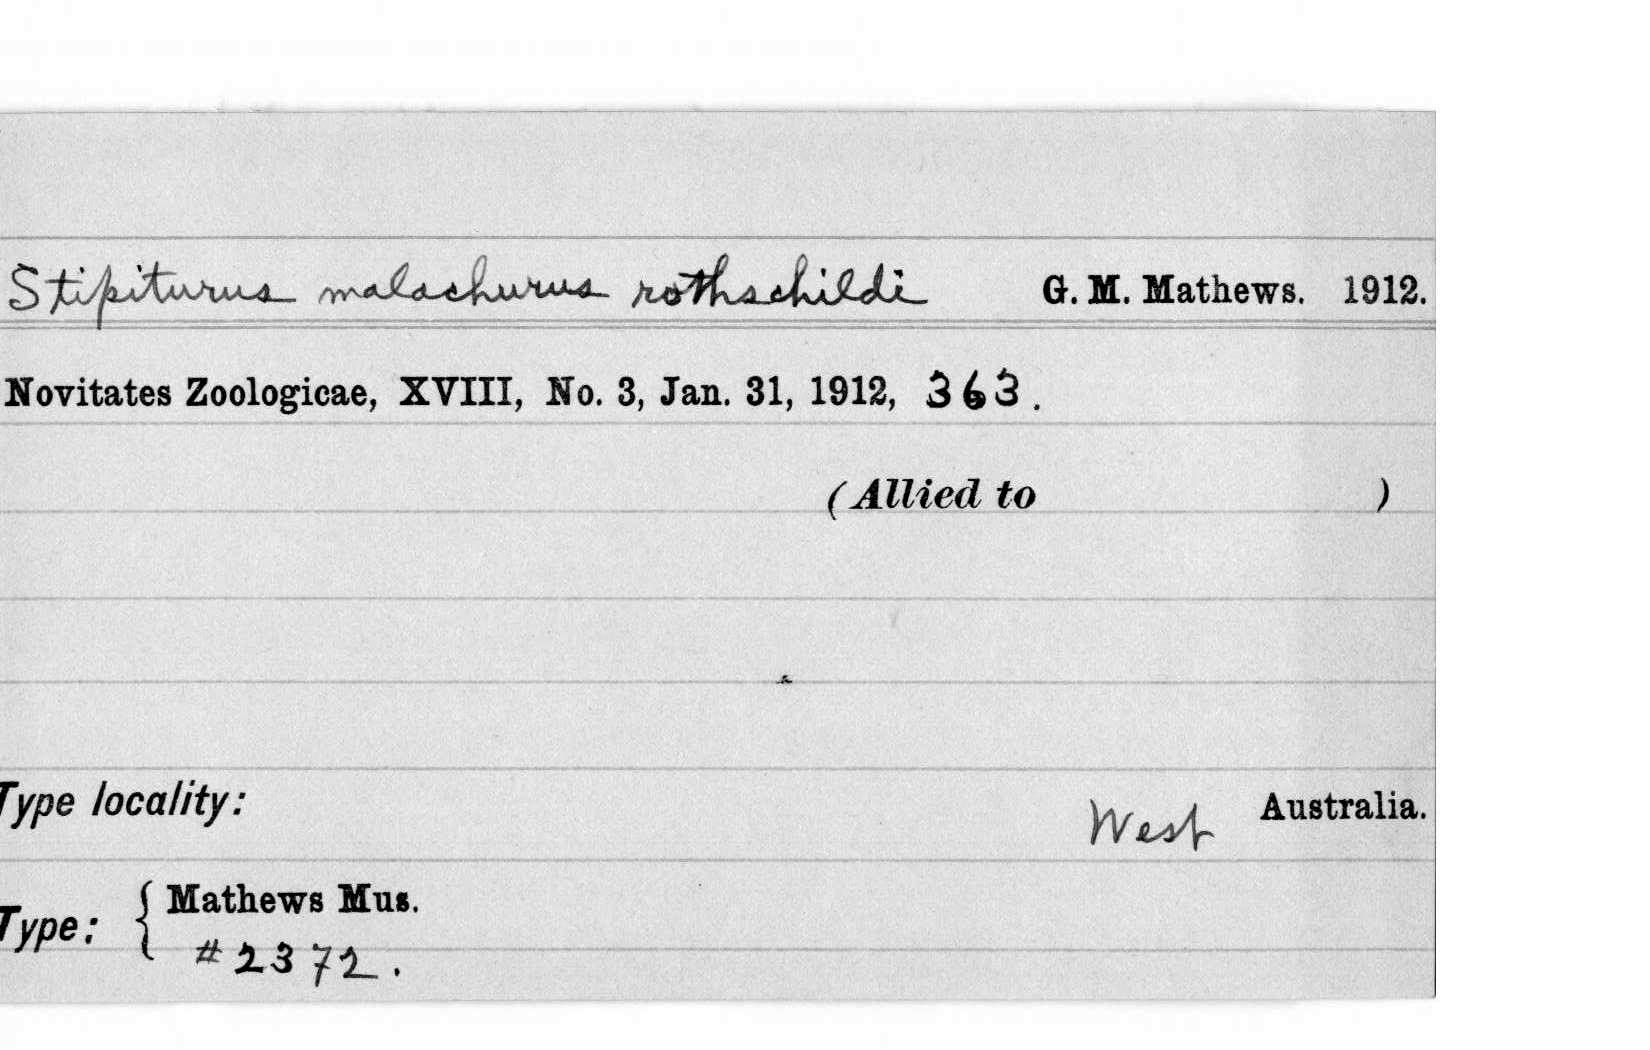 Stipiturus malachurus rothschildi G. M. Mathews. 1912.
Novitates Zoologicae, XVIII, No. 3, Jan. 31, 1912, 363.
(Allied to )
Type locality: West Australia.
Type: { Mathews Mus.
#2372.